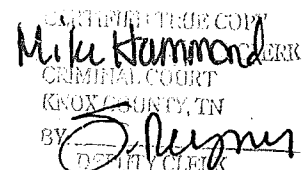 CERTIFIED TRUE COPY
Mike Hammond CLERK
CRIMINAL COURT
KNOX COUNTY, TN
BY
DEPUTY CLERK